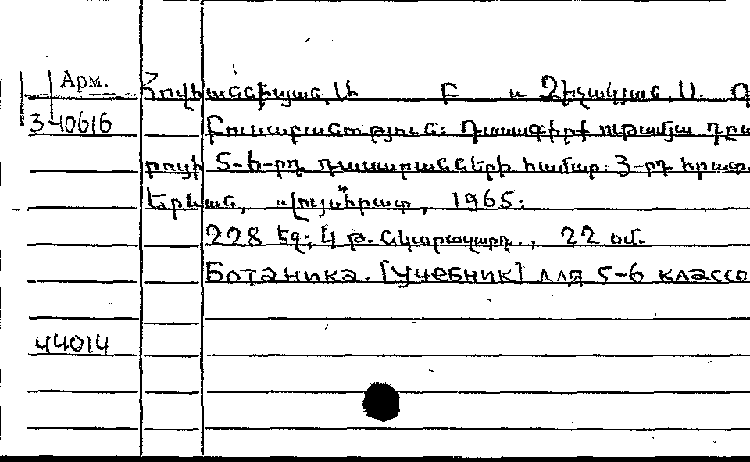 Арм.
Հովհաննիսյան, Ս. և Չիչակյան, Ա.
3-40616
Բուսաբանություն: Դասագիրք ութամյա դպրո
ցի 5-6-րդ դասարանների համար: 3-րդ հրատ.
Երևան, «Լույս» հրատ, 1965:
228 եջ; 4 թ. նկարազարդ., 22 սմ.
Ботаника. [Учебник] для 5-6 классо
44014